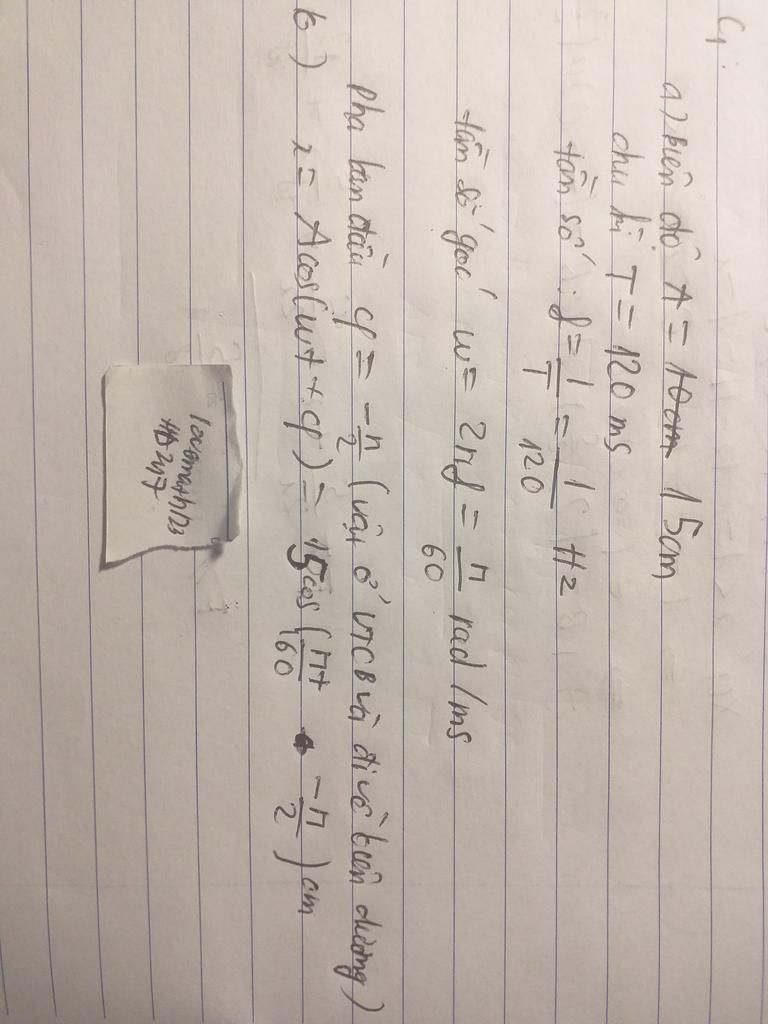 C1:
a) biên độ A = 15cm
chu kì T = 120 ms
tần số: f = 1/T = 1/120 Hz
tần số góc ω = 2πf = π/60 rad/ms
Pha ban đầu φ = -π/2 (vật ở VTCB và đi về biên dương)
b) x = Acos(ωt + φ) = 15cos(πt/60 - π/2) cm